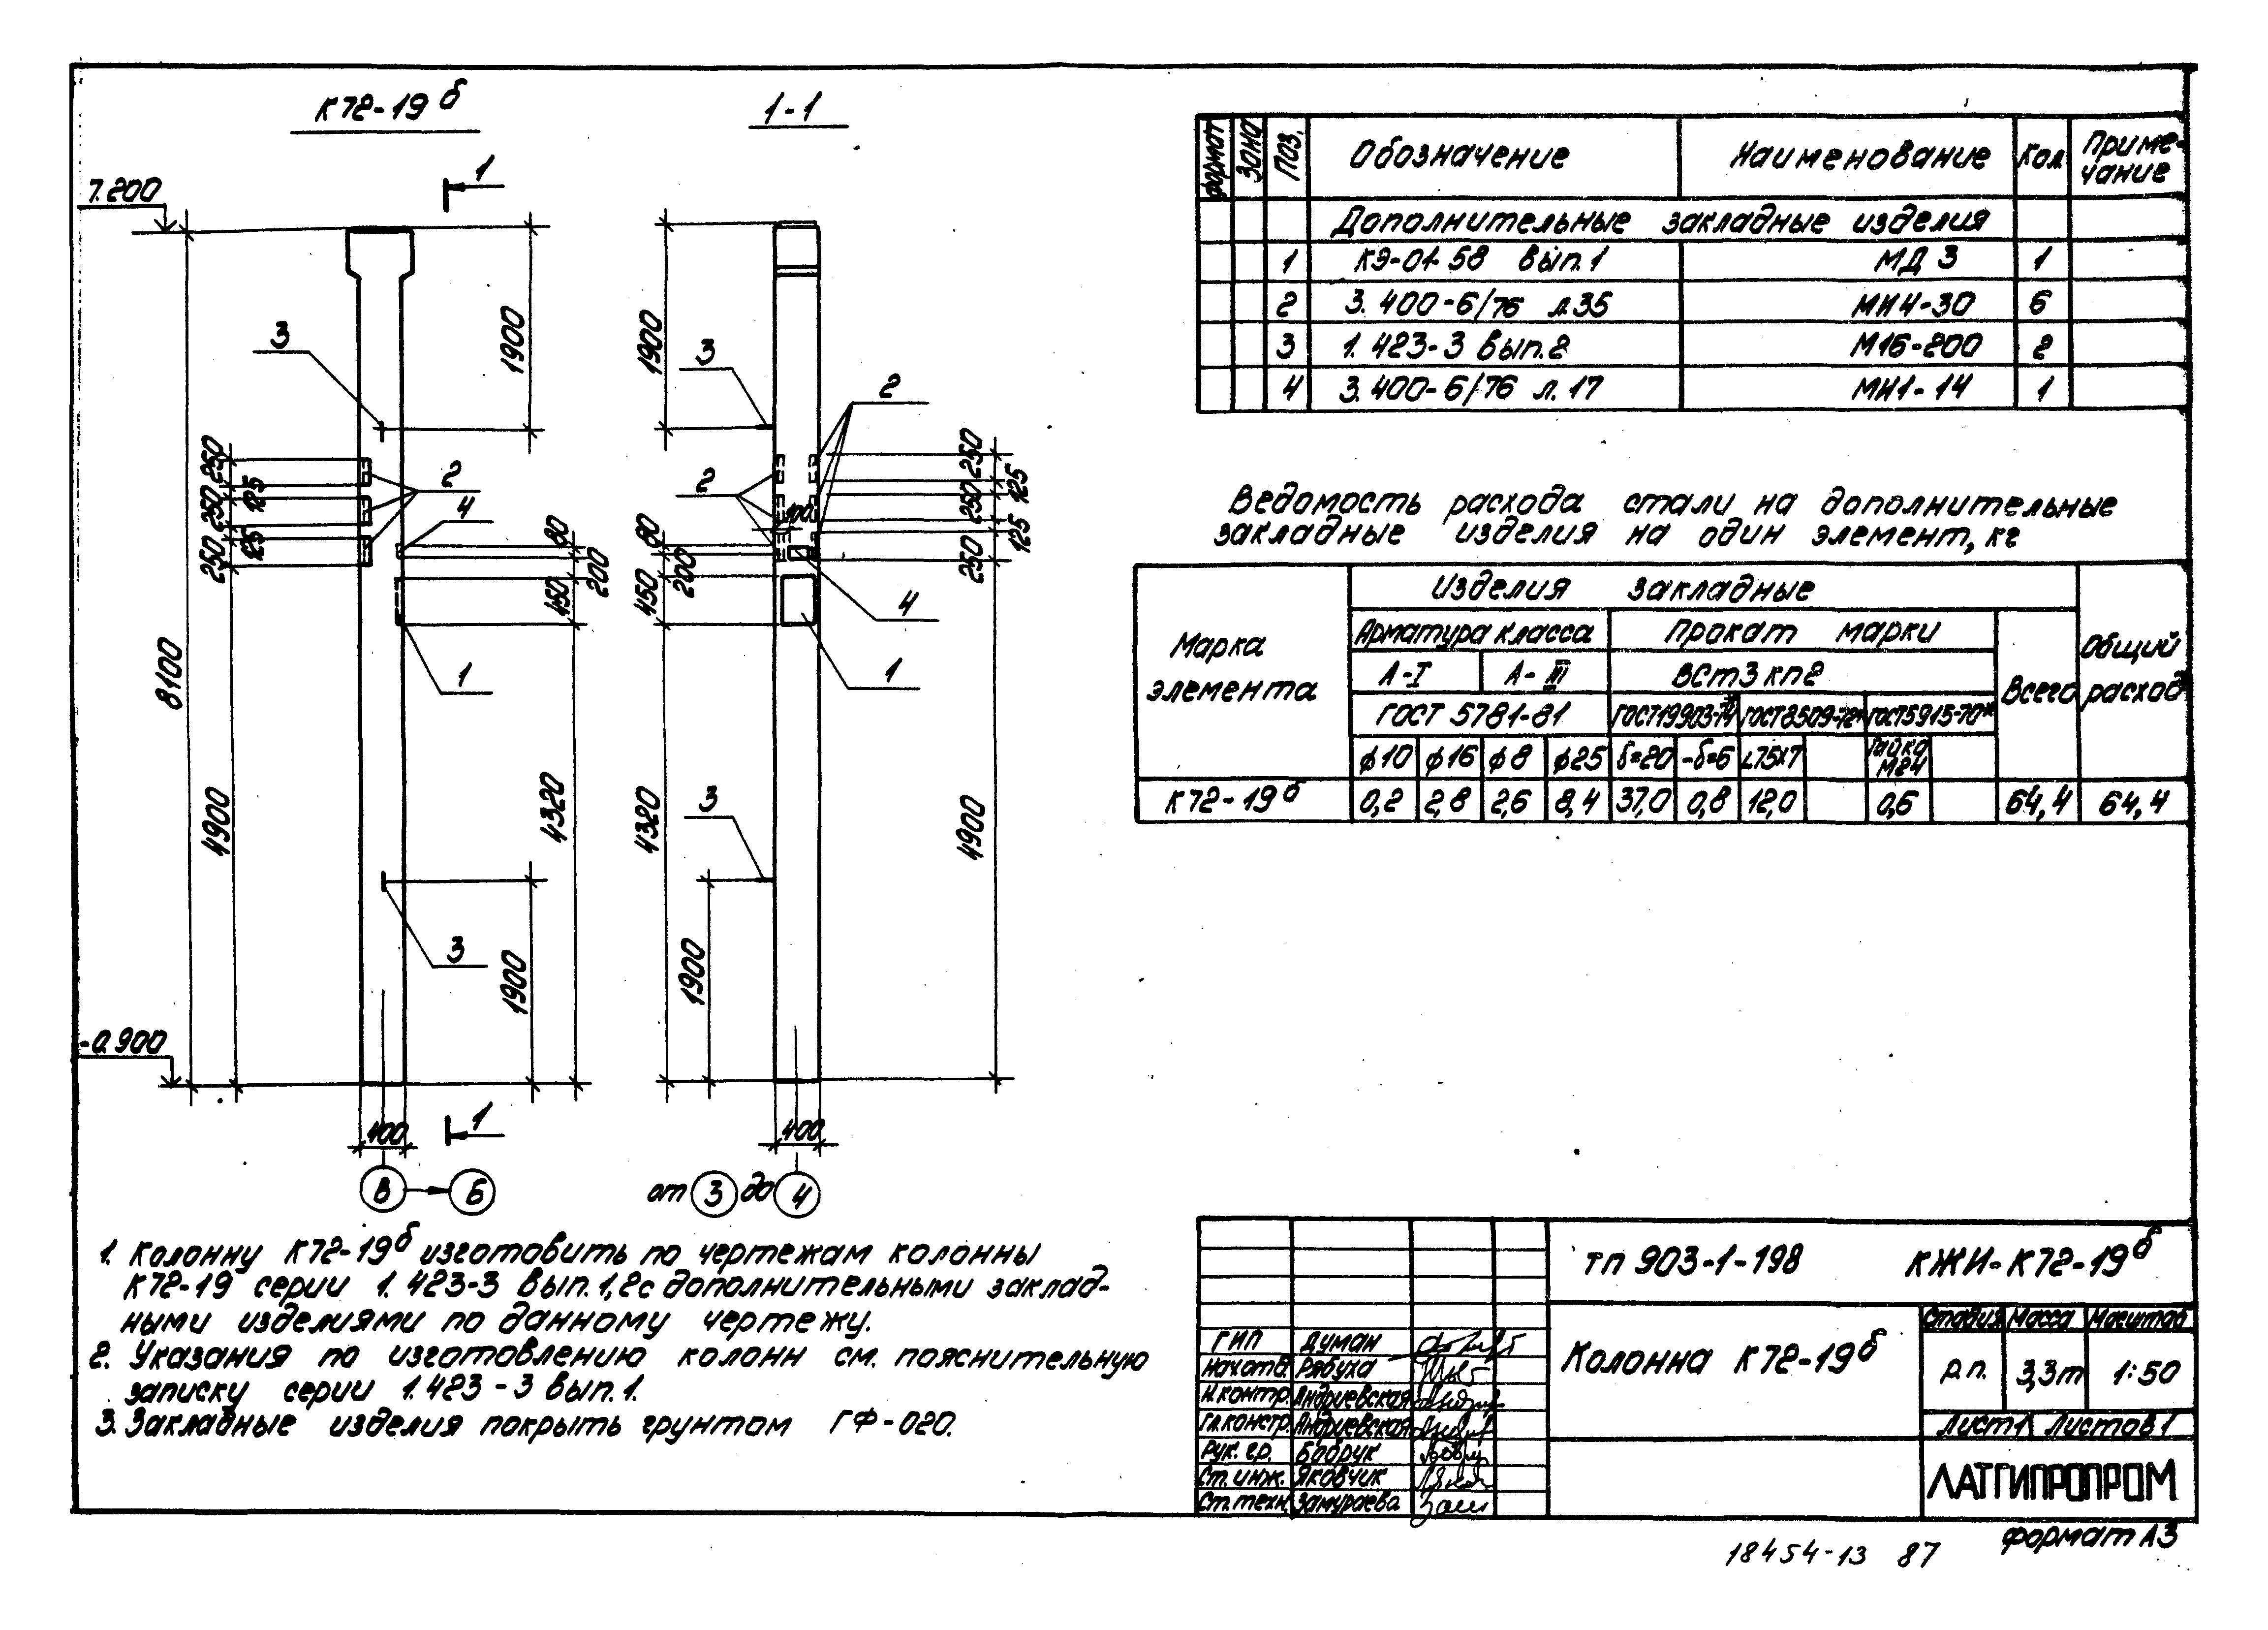 К72-19б
1-1
1
7.200
1900
1900
3
3
2
250
125
250
125
250
2
4
80
200
450
2
100
80
200
450
250
125
250
125
250
4
1
1
8100
4900
4320
4320
4900
3
1900
3
1900
-0.900
1
400
400
В
Б
от 3 до 4
1. Колонну К72-19б изготовить по чертежам колонны
К72-19 серии 1.423-3 вып.1,2 с дополнительными заклад-
ными изделиями по данному чертежу.
2. Указания по изготовлению колонн см. пояснительную
записку серии 1.423-3 вып.1.
3. Закладные изделия покрыть грунтом ГФ-020.
Формат Зона Поз. Обозначение Наименование Кол Приме-
чание
Дополнительные закладные изделия
1 КЭ-01-58 вып.1 МД 3 1
2 3.400-6/76 л.35 МН4-30 6
3 1.423-3 вып.2 М16-200 2
4 3.400-6/76 л.17 МН1-14 1
Ведомость расхода стали на дополнительные
закладные изделия на один элемент, кг
Марка
элемента
Изделия закладные
Общий
расход
Арматура класса Прокат марки
Всего
А-I А-III ВСт3кп2
ГОСТ 5781-81 ГОСТ19903-74* ГОСТ8509-72* ГОСТ5915-70*
ф10 ф16 ф8 ф25 δ=20 -δ=6 L75х7 Гайка
М24
К72-19б 0,2 2,8 2,6 8,4 37,0 0,8 12,0 0,6 64,4 64,4
ТП 903-1-198 КЖИ-К72-19б
Колонна К72-19б
Стадия Масса Масштаб
Р.п. 3,3т 1:50
Лист 1 Листов 1
ЛАТГИПРОПРОМ
ГИП Думан
Нач.отд. Рябуха
Н.контр. Андриевская
Гл.констр. Андриевская
Рук. гр. Бобрук
Ст. инж. Яковчик
Ст.техн. Замураева
Формат А3
18454-13 87